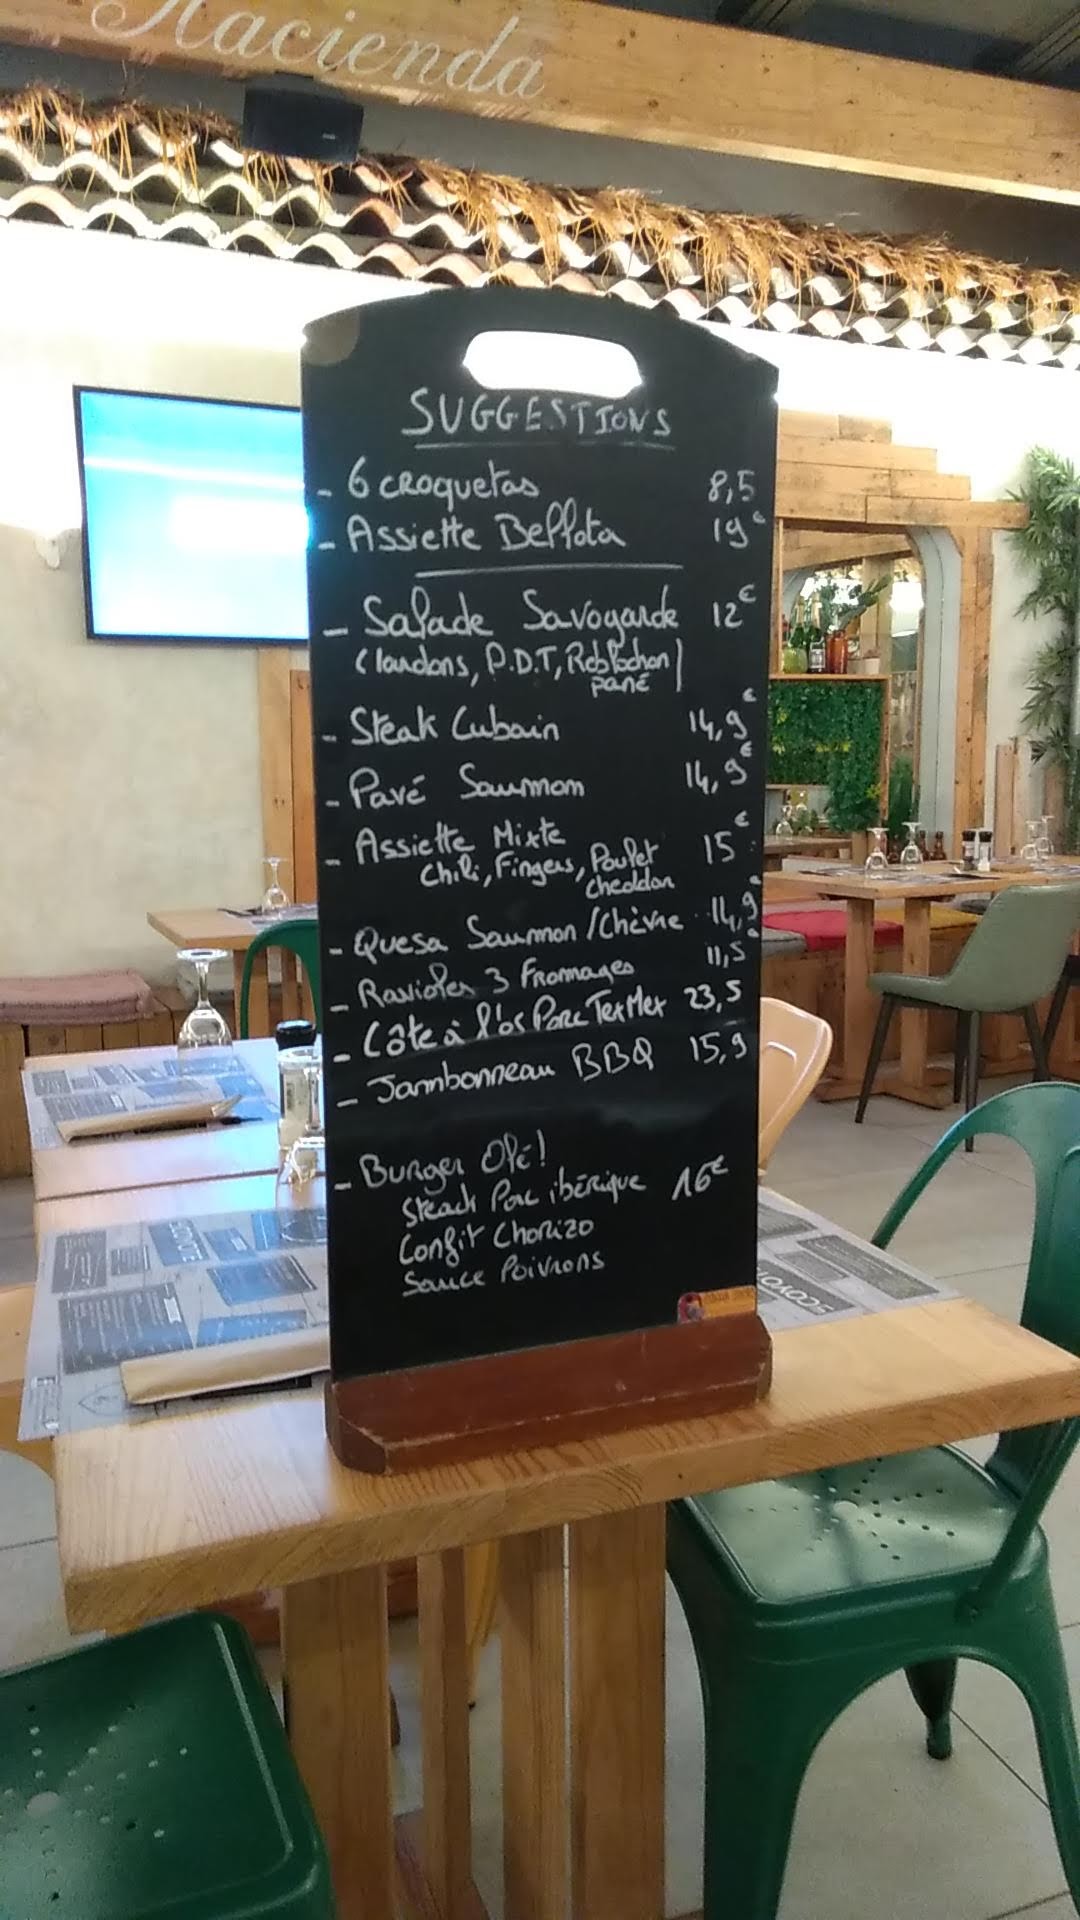 Hacienda
SUGGESTIONS
- 6 croquetas 8,5
- Assiette Bellota 19€
- Salade Savoyarde 12€
(lardons, P.D.T, Reblochon
pané)
- Steak Cubain 14,9€
- Pavé Saumon 14,9€
- Assiette Mixte 15€
Chili, Fingers, Poulet
cheddar
- Quesa Saumon/Chèvre 14,9€
- Ravioles 3 Fromages 11,5€
- Côte à l'os Porc TexMex 23,5
- Jambonneau BBQ 15,9
- Burger Olé!
Steack Porc ibérique 16€
Confit Chorizo
Sauce Poivrons